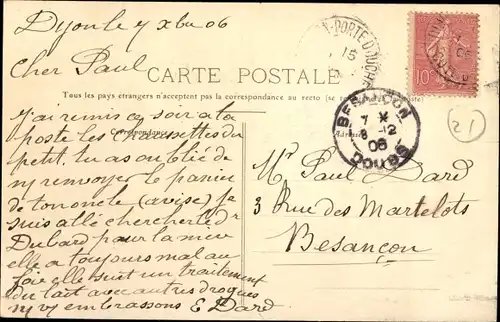 Dijon le 7 Xbre 06
Cher Paul
CARTE POSTALE
Tous les pays étrangers n'acceptent pas la correspondance au recto (se
J'ai remis ce soir à la
poste les chaussettes du
Correspondance
petit, tu as oublié de
m'y renvoyer le panier
de ton oncle (avise) je
suis allé chercher le Dr
Dubard pour la mère
elle a toujours mal au
foie elle suit un traitement
du lait avec autres drogues
n/s v/s embrassons E Dard
PORTE D'OUCHE
15
10
BESANÇON
7 X
8-12
06
DOUBS
21
Mr Paul Dard
3 Rue des Martelots
Besançon